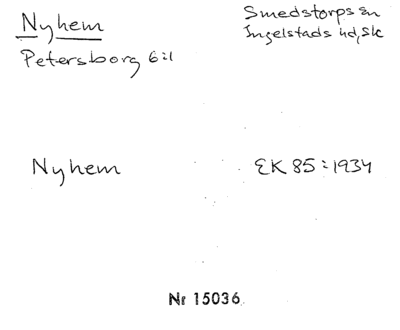 Nyhem
Smedstorps sn
Petersborg 6:1
Ingelstads hd, Sk
Nyhem
EK 85:1934
Nr 15036